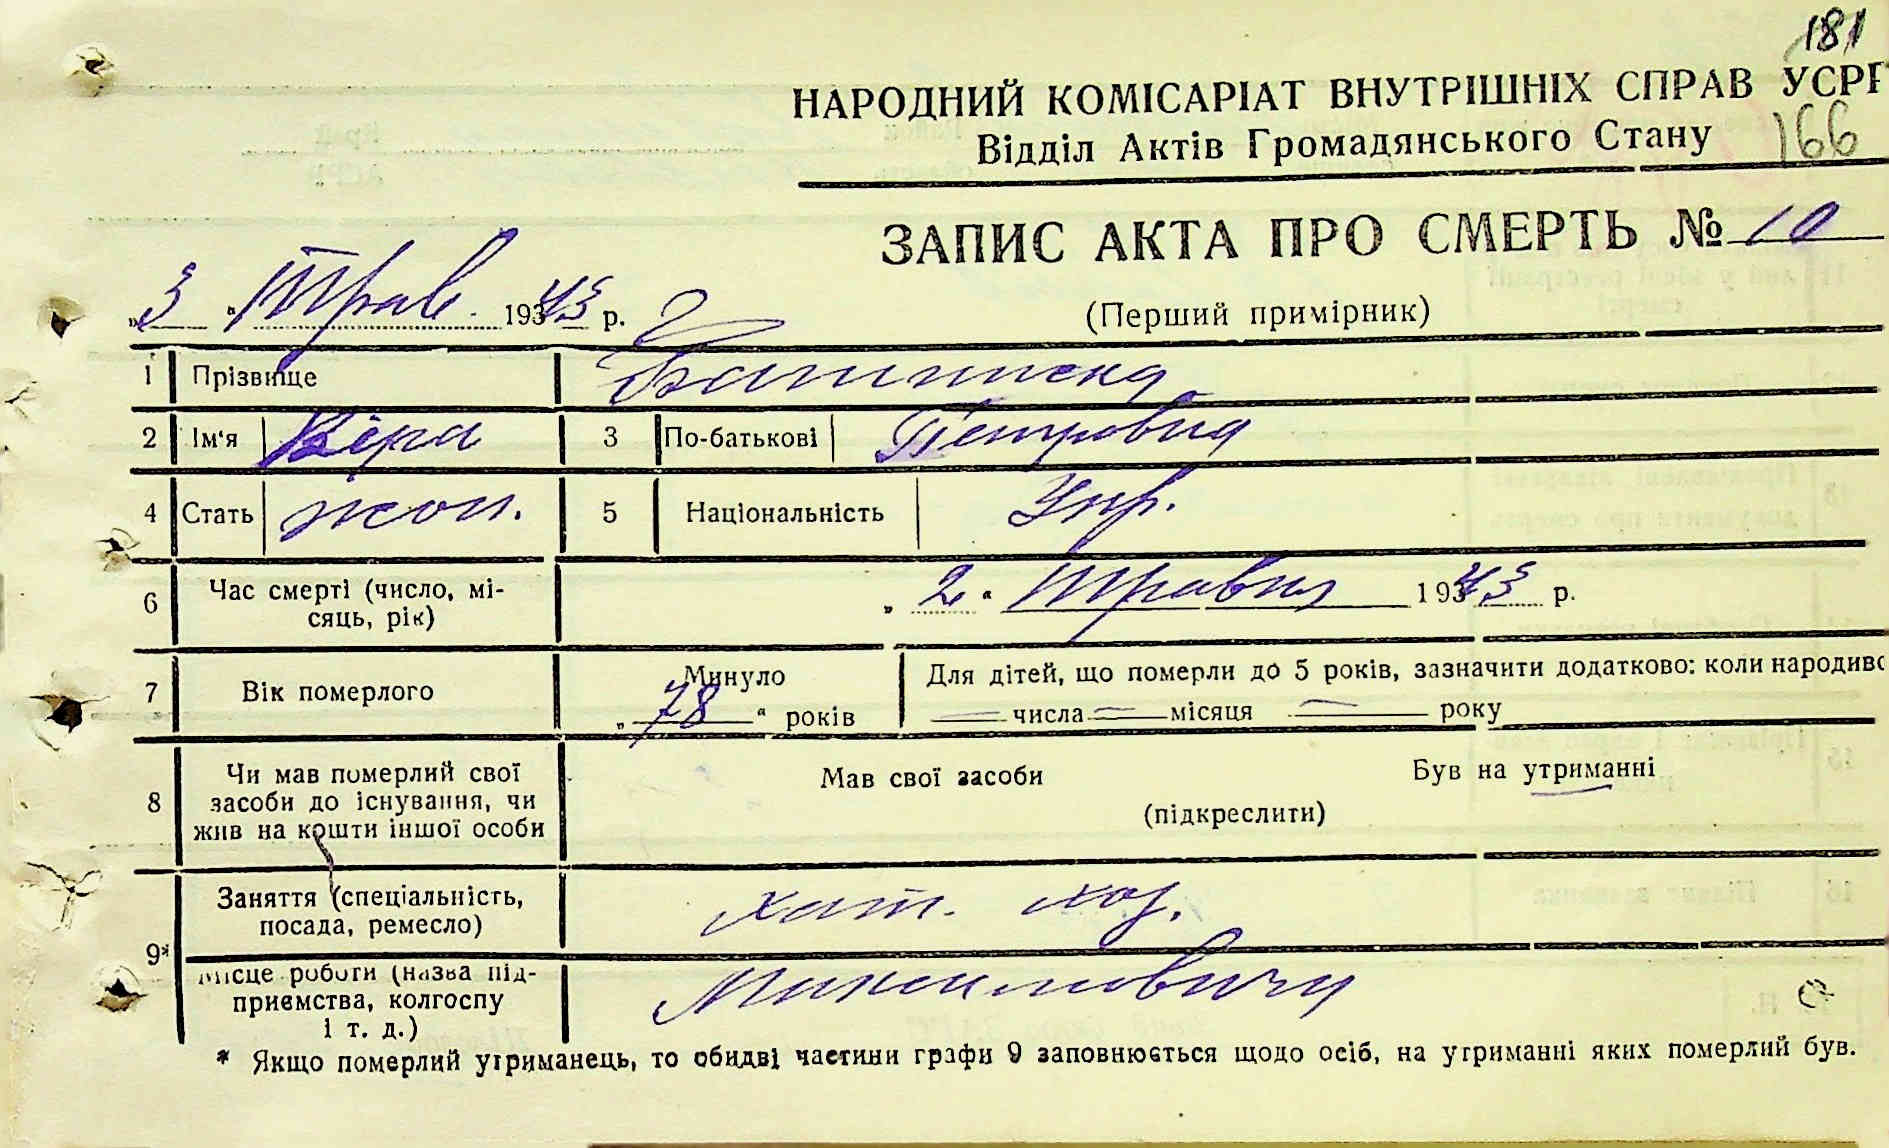 181
НАРОДНИЙ КОМІСАРІАТ ВНУТРІШНІХ СПРАВ УСРР
Відділ Актів Громадянського Стану 166
ЗАПИС АКТА ПРО СМЕРТЬ № 10
„3“ Трав. 1943 р.
(Перший примірник)
1 Прізвище
2 Ім'я Віра 3 По-батькові Петровна
4 Стать жон. 5 Національність Укр.
6 Час смерті (число, мі-
сяць, рік) „2“ Травня 1943 р.
7 Вік померлого Минуло „78“ років Для дітей, що померли до 5 років, зазначити додатково: коли народивс
— числа — місяця — року
8 Чи мав померлий свої
засоби до існування, чи
жив на кошти іншої особи
Мав свої засоби Був на утриманні
(підкреслити)
9* Заняття (спеціальність,
посада, ремесло) хат. хоз.
Місце роботи (назва під-
приємства, колгоспу
і т. д.) Максимовичи
* Якщо померлий утриманець, то обидві частини графи 9 заповнюється щодо осіб, на утриманні яких померлий був.